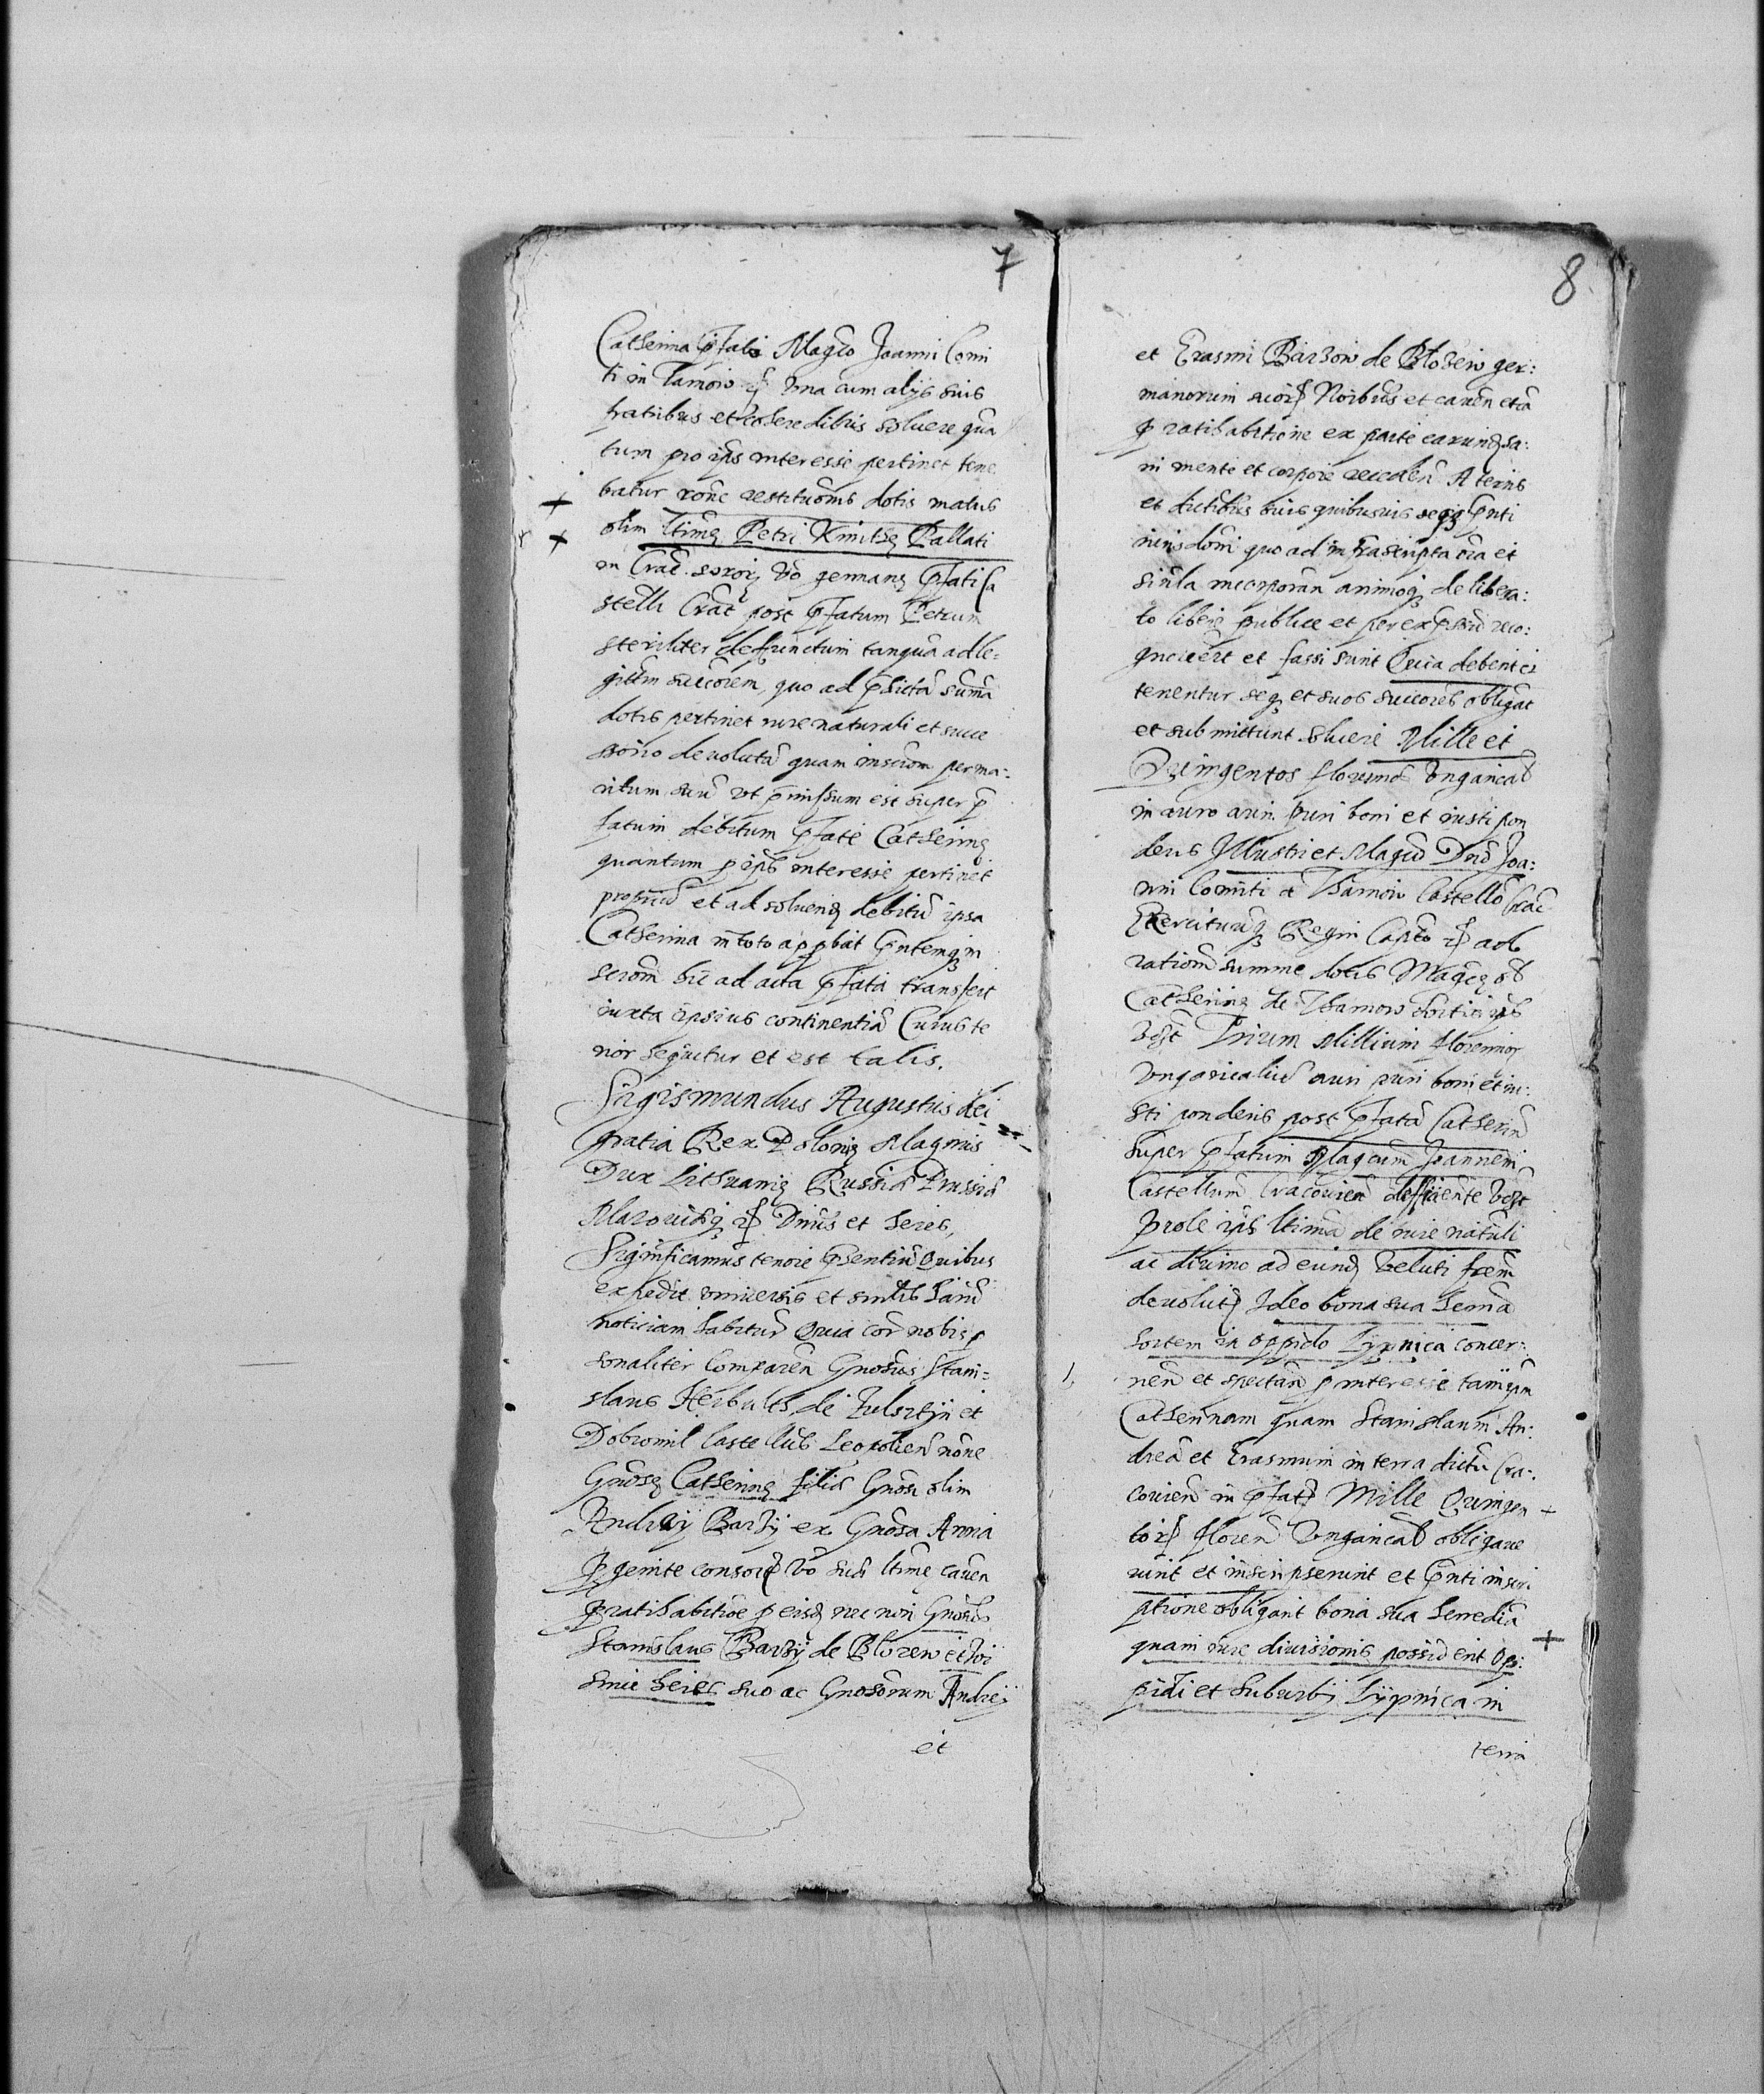 7
Catherina pfata Magco Joanni Comi
ti in Tarnow una cum alijs suis
fratribus et coheredibus soluere qua
tum pro ips interesse pertinet tene
batur rone restitutionis dotis matris
olim ltimę Petri Kmithę Pallati
in Crac. soroi vo germanę pfati Ca
stelli Crac post pfatum Petrum
steriliter defunctum tanqua ad le=
gittm succorem, quo ad pdicta suma
dotis pertinet iure naturali et succe
ssorio deuoluta quam inscriom per ma=
ritum suu ut pmissum est super p
fatum debitum pfate Catherinę
quantum p ips interesse pertinet
et ad soluend debitu ipsa
Catherina in toto appbat pntemq in
scriom hic ad acta pfata transfert
iuxta ipsius continentia Cuius te
nor sequitur et est talis.
Sigismundus Augustus dei
gratia Rex Polonię Magnus
Dux Lithuanię Russia Prussia
Masouięq Dnus et heres,
Significamus tenore psentiu quibus
expedit universis et singlis haru
noticiam habitur Quia cor nobis p
sonaliter Comparen Gnosus Stani=
slaus Herbults de Fulsztyn et
Dobromil Castellus Leopolien none
Gnosę Catherinę filia Gnosi olim
Andreij Barzij ex Gnosa Anna
pgenite consor vo sua ltime caven
p ratihabitioe p eisd nec non Gnosus
Stanislaus Barzij de Blozew et
heres suo ac Gnosorum Andreij
et
8
et Erasmi Barzow de Blozew ger:
manorum suor Noibus et caven eta
p ratihabitione ex parte earund sa:
ni mente et corpore receden A terris
et dictibus suis quibusuis seq pnti
iurisdoni quo ad infrascripta oia et
sinla incorporan animoq delibera:
to libere publice et per expssum reco:
gnouert et fassi sunt Quia debent et
tenentur seq et suos succores obligat
et submittunt soluere Mille et
Quingentos florenos Ungarical
in auro auri puri boni et iusti pon
deris Illustri et Magco Dno Joa:
nni Comiti a Tharnow Castello Crac
Exercituuq Regni Capto ad
rationem summe dotis Magcę ol
Catherinę de Tharnow
Trium Millium florenor
Ungaricaliu auri puri boni et iu:
sti ponderis post pfata Catherin
super pfatum Magcum Joannem
Castellum Cracovien defficiente
prole ips ltima de iure natuli
ac diuino ad eund veluti frem
deuolut Ideo bona sua
sortem in oppido Lypnica concer:
nen et spectan p interesse tam ipm
Catherinam quam Stanislaum An:
drea et Erasmum in terra dictu Cra:
couien in pfat Mille Quingen
tor floren Ungarical obligaue
runt et inscripserunt et pnti inscri
ptione obligant bona sua heredia
quam iure diuisionis possident Op:
pidi et suburbij Lypnica in
terra